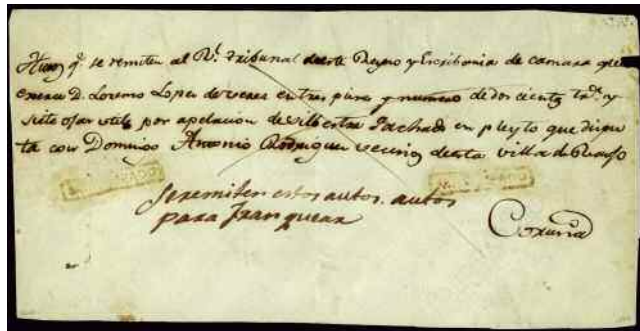 qe. se remiten al Rl. tribunal deeste Reyno y Escribania de camara que
D. Lorenzo Lopez de veres en tres piezas y numero de dos cientas trta. y
siete ojas utiles por apelacion de Silbestre Machado en pleyto que dispu
ta con Domingo Antonio Rodriguez vecino desta villa de
Se remiten estos autos. autos
para franquear
Coruña